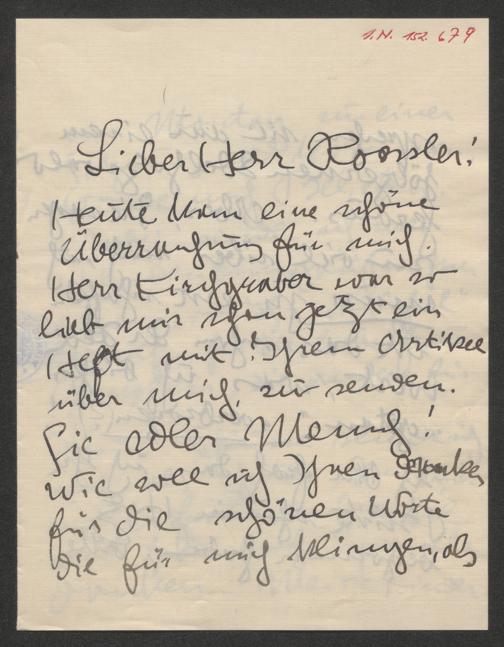 I.N. 152.679
Lieber Herr Roessler!
Heute kam eine schöne
Überraschung für mich.
Herr Kirchgraber war so
lieb mir schon jetzt ein
Heft mit Ihrem Artikel
über mich, zu senden.
Sie edler Mensch!
Wie soll ich Ihnen danken
für die schönen Worte
die für mich klingen, als